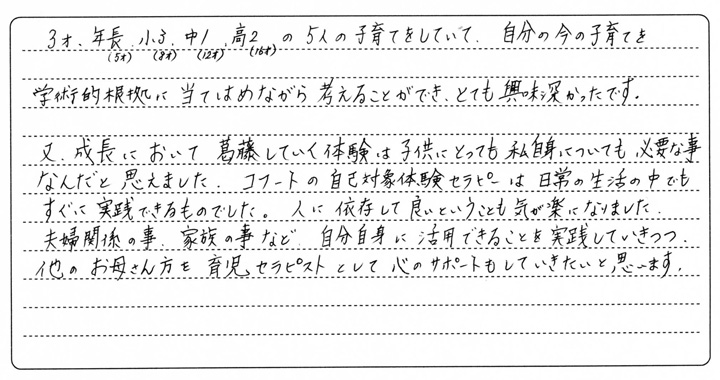 3才、年長、小3、中1、高2 の 5人の子育てをしていて、自分の今の子育てを
(5才) (8才) (12才) (16才)
学術的根拠に 当てはめながら 考えることができ、とても 興味深かったです。
又、成長において 葛藤していく体験は子供にとっても 私自身についても 必要な事
なんだと 思えました。 コフートの自己対象体験セラピーは 日常の生活の中でも
すぐに 実践できるものでした。 人に 依存して良いということも 気が楽になりました。
夫婦関係の事、家族の事など、自分自身に 活用できることを実践していきつつ、
他の お母さん方を 育児セラピストとして 心のサポートもしていきたいと 思います。